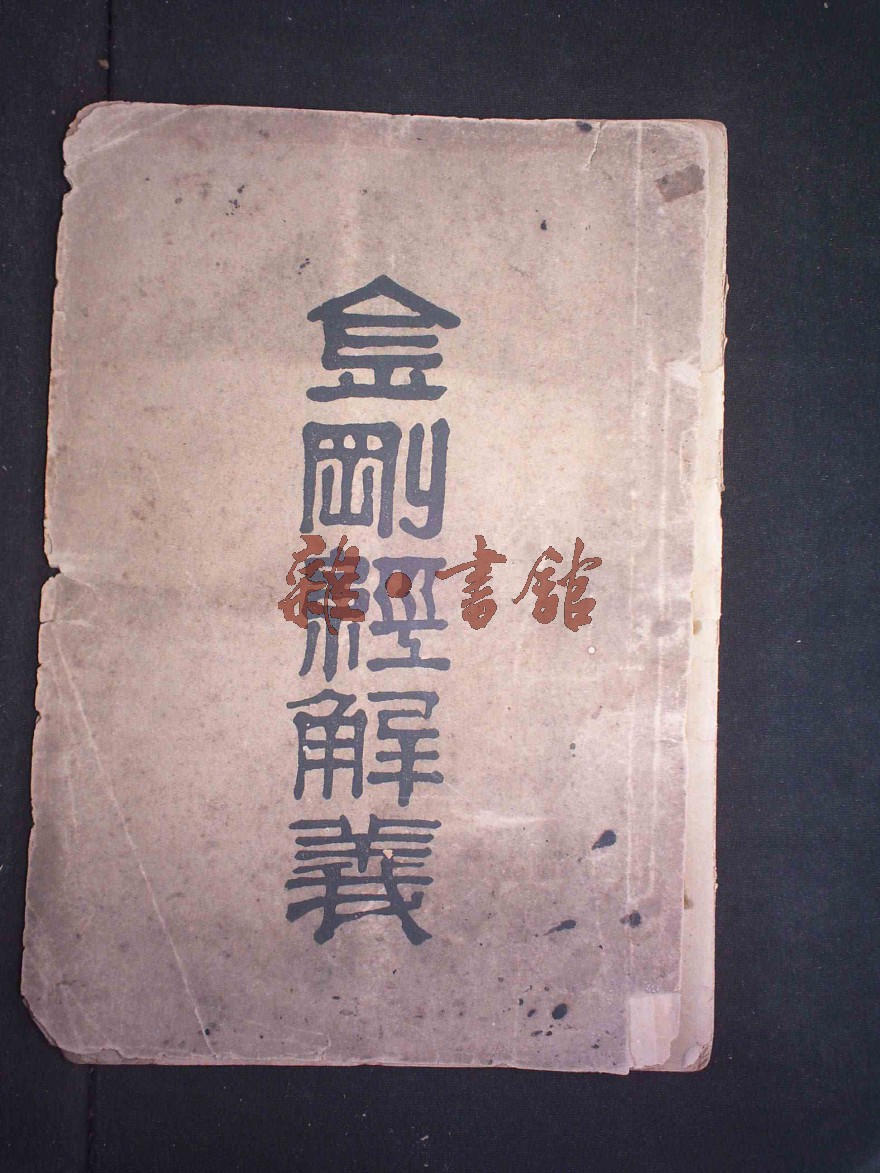 金剛經解義
雜·書館